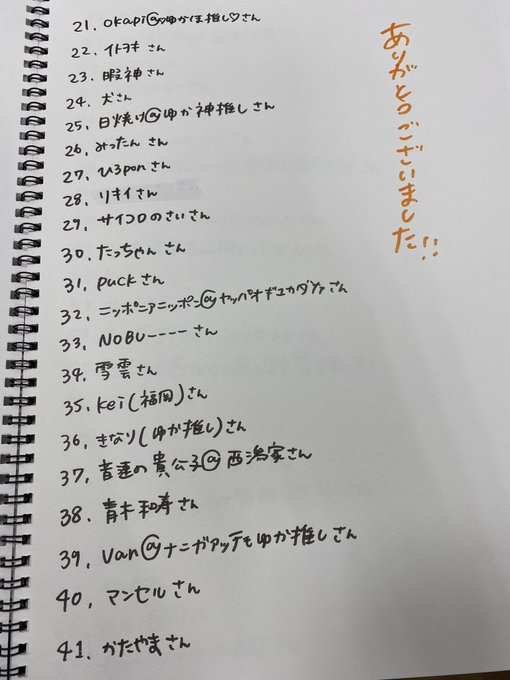 21. Okapi@ゆかほ推し♡さん
22. イトヲキ さん
23. 暇神さん
24. 犬さん
25. 日焼け@ゆか神推しさん
26. みったん さん
27. ひろpon さん
28. リキイさん
29. サイコロのさいさん
30. たっちゃん さん
31. puckさん
32. ニッポニアニッポン@ヤッパオギユカダヤさん
33. NOBUーーーーさん
34. 雪雲さん
35. kei(福岡)さん
36. きなり(ゆか推し)さん
37. 音速の貴公子@西潟家さん
38. 青木和寿さん
39. Van@ナニガアッテもゆか推しさん
40. マンセルさん
41. かたやまさん
ありがとうございました!!